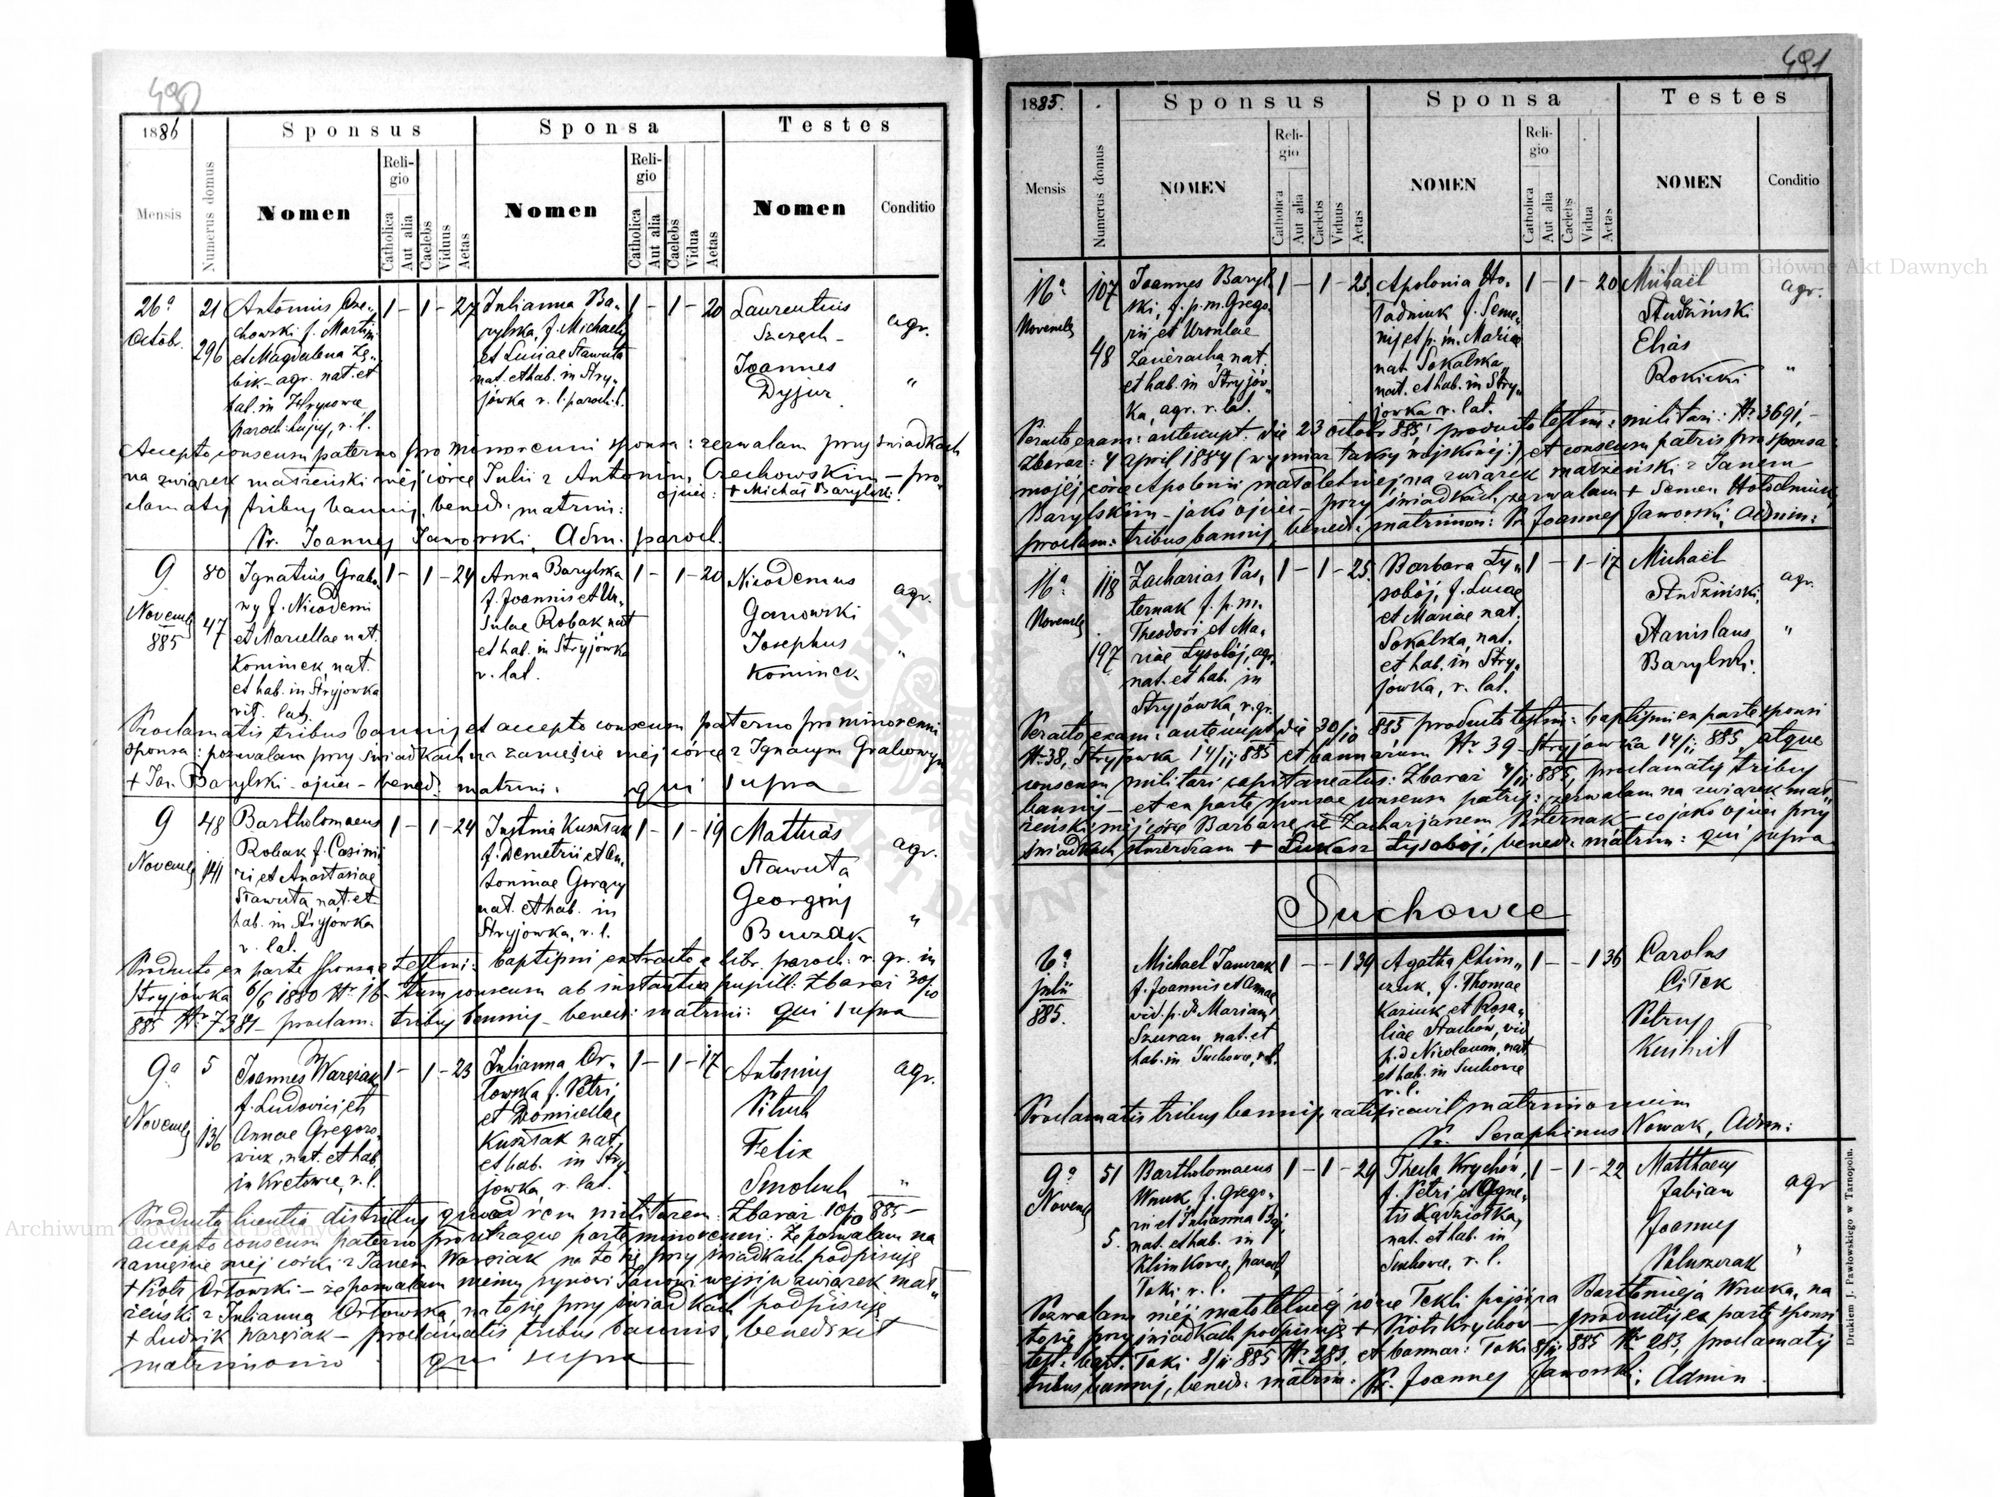 490
1886
Sponsus
Sponsa
Testes
Mensis
Numerus domus
Nomen
Religio
Catholica
Aut alia
Caelebs
Viduus
Aetas
Nomen
Religio
Catholica
Aut alia
Caelebs
Vidua
Aetas
Nomen
Conditio
26a
Octobr.
21
296
Antonius Orze-
chowski f. Martini
et Magdalena
bik - agr. nat. et
hab. in
paroch. hujus, r. l.
1 - 1 - 27
Julianna Ba-
rylska, f. Michaelis
et Luciae Stawuta
nat. et hab. in Stry-
jówka r. l. paroch. l.
1 - 1 - 20
Laurentius
Szczęch -
Joannes
Dyjur
agr.
"
Accepto consensu paterno pro minorenni sponsa: zezwalam przy świadkach
na związek małżeński mej córce Julii z Antonim Orzechowskim - pro-
clamatis tribus bannis, bened: matrim: ojciec: + Michał Barylski.
Pr. Joannes Jaworski, Adm. paroch.
9
Novembr
885
80
47
Ignatius Grabo-
wy f. Nicodemi
et Mariellae nat.
Kominek, nat.
et hab. in Stryjówka
rit. lat.
1 - 1 - 24
Anna Barylska
f. Joannis et Ur-
sulae Robak nat
et hab. in Stryjówka
r. lat.
1 - 1 - 20
Nicodemus
Ganowski
Josephus
Kominek
agr.
"
Proclamatis tribus bannis et accepto consensu paterno pro minorenni
sponsa: pozwalam przy świadkach na zamęście mej córce z Ignacym Grabowym
+ Jan Barylski - ojciec - bened: matrim: qui supra
9
Novembr
48
141
Bartholomaeus
Robak f. Casimi-
ri et Anastasiae
Stawuta, nat. et
hab. in Stryjówka
r. lat.
1 - 1 - 24
Justina Kuśniak
f. Demetrii et An-
toninae Gorący
nat. et hab. in
Stryjówka, r. l.
1 - 1 - 19
Mathias
Stawuta
Georgius
Burzak
agr.
"
Producto ex parte sponsae testim: baptismi extracto e libr. paroch: r. gr. in
Stryjówka 6/6 1880 Nr. 16 - tum consensu ab instantia pupill: Zbaraż 30/10
885 Nr 7384 - proclam: tribus bannis - bened: matrim: qui supra
9a
Novembr
5
136
Joannes Wargiak
f. Ludovici et
Annae Gregoro-
wicz, nat. et hab.
in Kretowce, r. l.
1 - 1 - 23
Julianna Or-
łowska f. Petri
et Domicellae
Kuśniak nat.
et hab. in Stry-
jówka, r. lat.
1 - 1 - 17
Antonius
Felix
Smoluch
agr.
"
Producta licentia districtus quoad rem militarem: Zbaraż 10/10 885 -
accepto consensu paterno pro utraque parte minorenni: Że pozwalam na
zamęście mej córki z Janem Wargiak na to się przy świadkach podpisuję
+ Piotr Orłowski - że pozwalam memu synowi Janowi wejść w związek mał-
żeński z Julianną Orłowską, na to się przy świadkach podpisuję
+ Ludwik Wargiak - proclamatis tribus bannis, benedixit
matrimonio qui supra
491
1885.
Sponsus
Sponsa
Testes
Mensis
Numerus domus
NOMEN
Religio
Catholica
Aut alia
Caelebs
Viduus
Aetas
NOMEN
Religio
Catholica
Aut alia
Caelebs
Vidua
Aetas
NOMEN
Conditio
16a
Novembr
107
48
Joannes Baryl-
ski, f. p. m. Grego-
rii et Ursulae
nat.
et hab. in Stryjów-
ka, agr. r. lat.
1 - 1 - 23
Apolonia Ho-
łodniuk f. Seme-
nis et p. m. Mariae
nat. Sokalska,
nat. et hab. in Stry-
jówka r. lat.
1 - 1 - 20
Michaël
Studziński
Elias
Rokicki
agr.
"
Peracto exam: antenupt. die 23 octobr 885; producto testim: militari: Nr. 3691, -
Zbaraż: 4 April 1884 (wymiar taksy wojskowej:) et consensu patris pro sponsa:
mojej córce Apolonii małoletniej na związek małżeński z Janem
Barylskim - jako ojciec - przy świadkach zezwalam + Semen Hołodniuk,
proclam: tribus bannis, bened: matrimon: Pr. Joannes Jaworski, Admin:
16a
Novembr
118
197
Zacharias Pas-
ternak f. p. m.
Theodori et Ma-
riae Łysobój, agr.
nat. et hab. in
Stryjówka, r. gr.
1 - 1 - 25
Barbara Ły-
sobój, f. Lucae
et Mariae nat.
Sokalska, nat.
et hab. in Stry-
jówka, r. lat.
1 - 1 - 17
Michaël
Studziński,
Stanislaus
Barylski.
agr.
"
Peracto exam: antenupt. die 30/10 885 producto testim: baptismi ex parte sponsi
Nr. 38, Stryjówka 14/11 885 et bannarum Nr 39 - Stryjówka 14/11 885, atque
consensu militari capitaneatus: Zbaraż 4/11 885, proclamatis tribus
bannis - et ex parte sponsae consensu patris: zezwalam na związek mał-
żeński mej córce Barbarze ze Zacharjanem Pasternak - co jako ojciec przy
świadkach stwierdzam + Łukasz Łysobój, bened: matrim: qui supra
Suchowce
6a
julii
885.
Michael Janczak
f. Joannis et Annae
vid. p. d. Mariam
Szuran, nat. et
hab. in Suchowce, r. l.
1 - - 1 39
Agatha Chim-
czuk, f. Thomae
Kaziuk et Rosa-
liae Stachów, vid.
p. d Nicolaum, nat.
et hab. in Suchowce
r. l.
1 - - 1 36
Carolus
Citek
Petrus
Proclamatis tribus bannis, ratificavit matrimonium
Pr. Seraphinus Nowak, Adm:
9a
Novembr
51
5.
Bartholomaeus
Wnuk, f. Grego-
rii et Julianna
nat. et hab. in
Klimkowce, paroch.
Toki r. l.
1 - 1 - 29
Thecla Krychów,
f. Petri et Agne-
tis Kądziołka,
nat. et hab. in
Suchowce, r. l.
1 - 1 - 22
Matthaeus
Fabian
Joannes
agr
"
Pozwalam mej małoletniej córce Tekli pojść za Bartłomieja Wnuka, na
to się przy świadkach podpisuję + Piotr Krychów - productis ex parte sponsi
test: bapt. Toki 8/11 885 Nr. 283, et bannar: Toki 8/11 885 Nr 283, proclamatis
tribus bannis, bened: matrim: Pr. Joannes Jaworski, Admin
Drukiem J. Pawłowskiego w Tarnopolu.
Archiwum Główne Akt Dawnych
Archiwum Główne Akt Dawnych